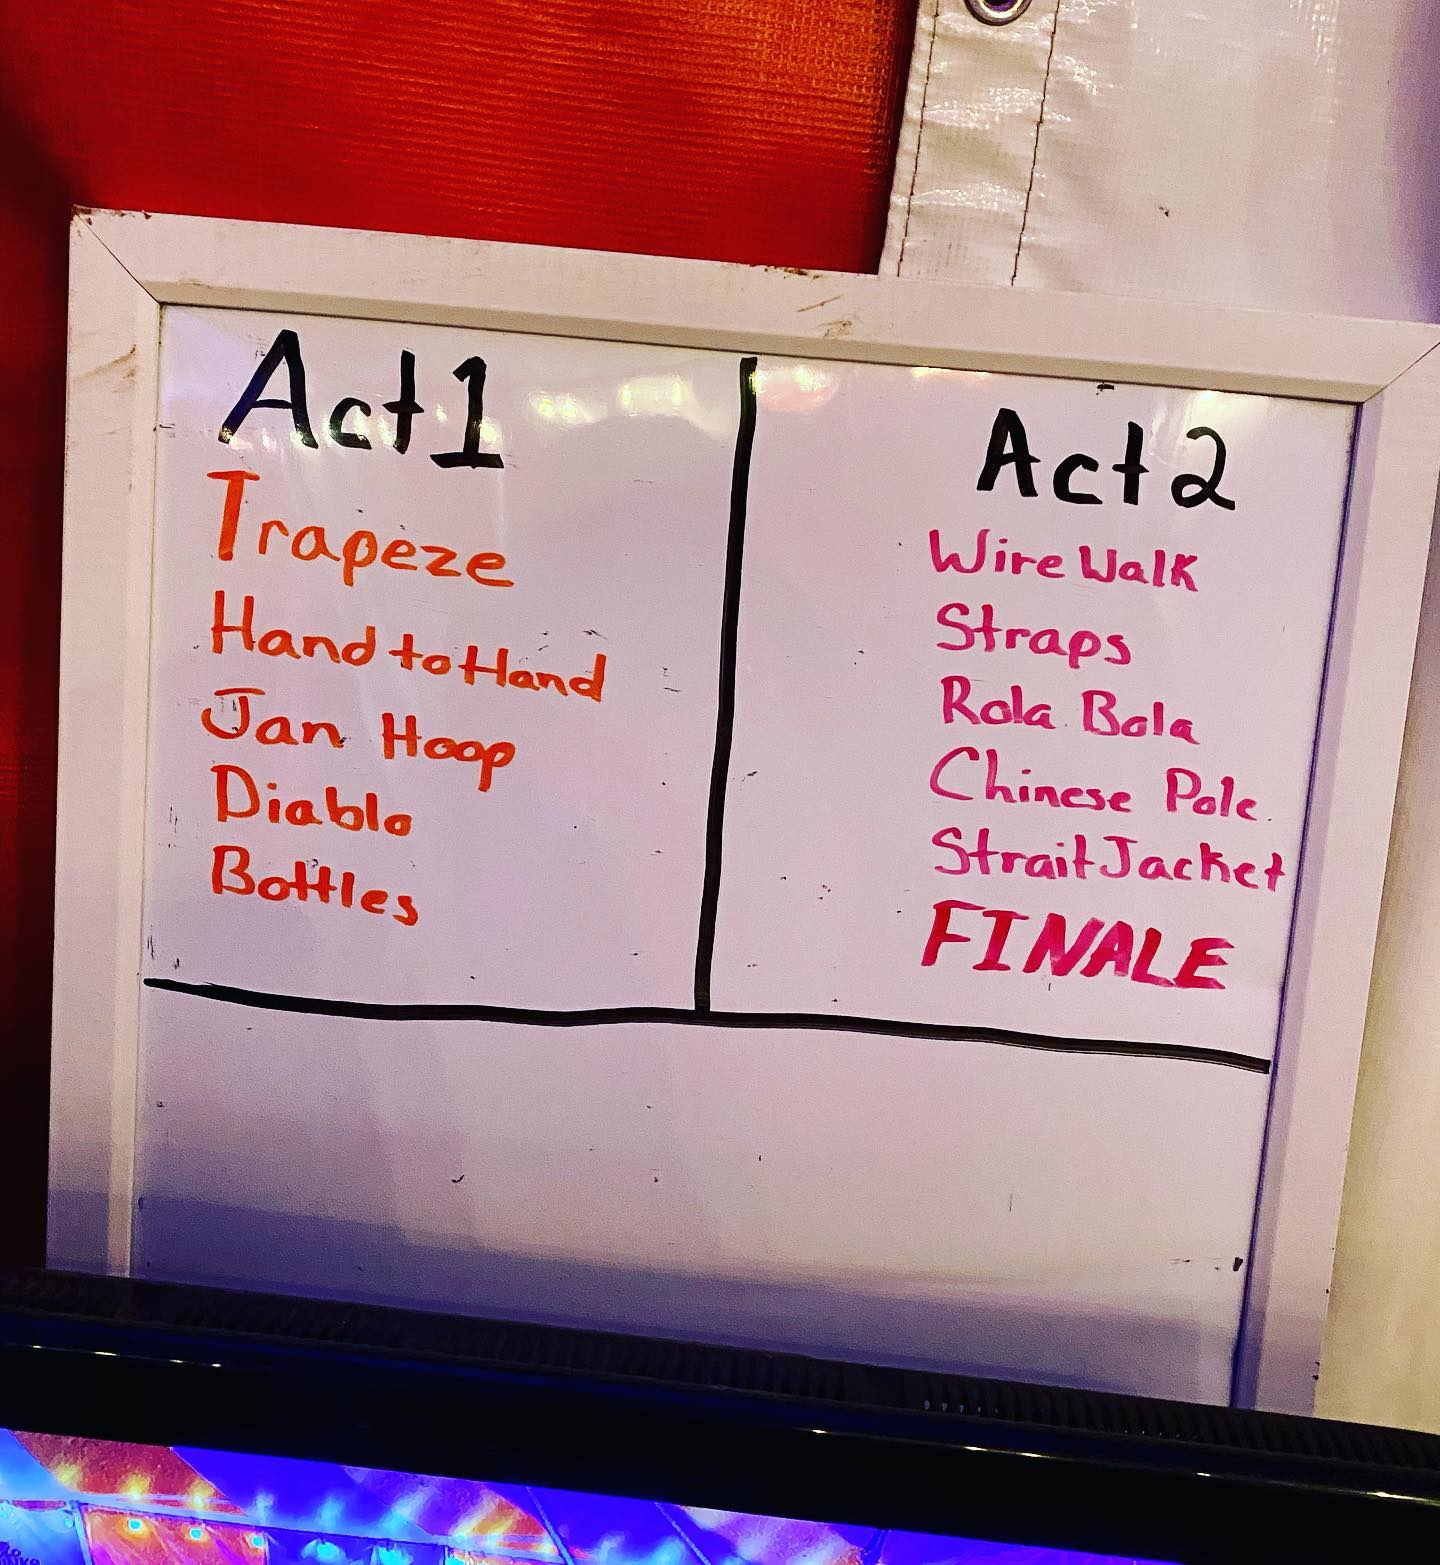 Act 1
Trapeze
Hand to Hand
Jan Hoop
Diablo
Bottles
Act 2
Wire Walk
Straps
Rola Bola
Chinese Pole
Strait Jacket
FINALE